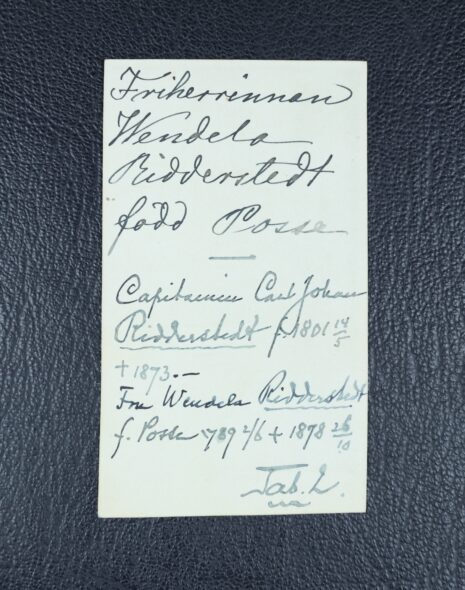 Friherrinnan
Wendela
Ridderstedt
född Posse
Capitainen Carl Johan
Ridderstedt f. 1801 14/5
+ 1873.-
Fru Wendela Ridderstedt
f. Posse 1789 2/6 + 1878 26/10
Tab. 2.